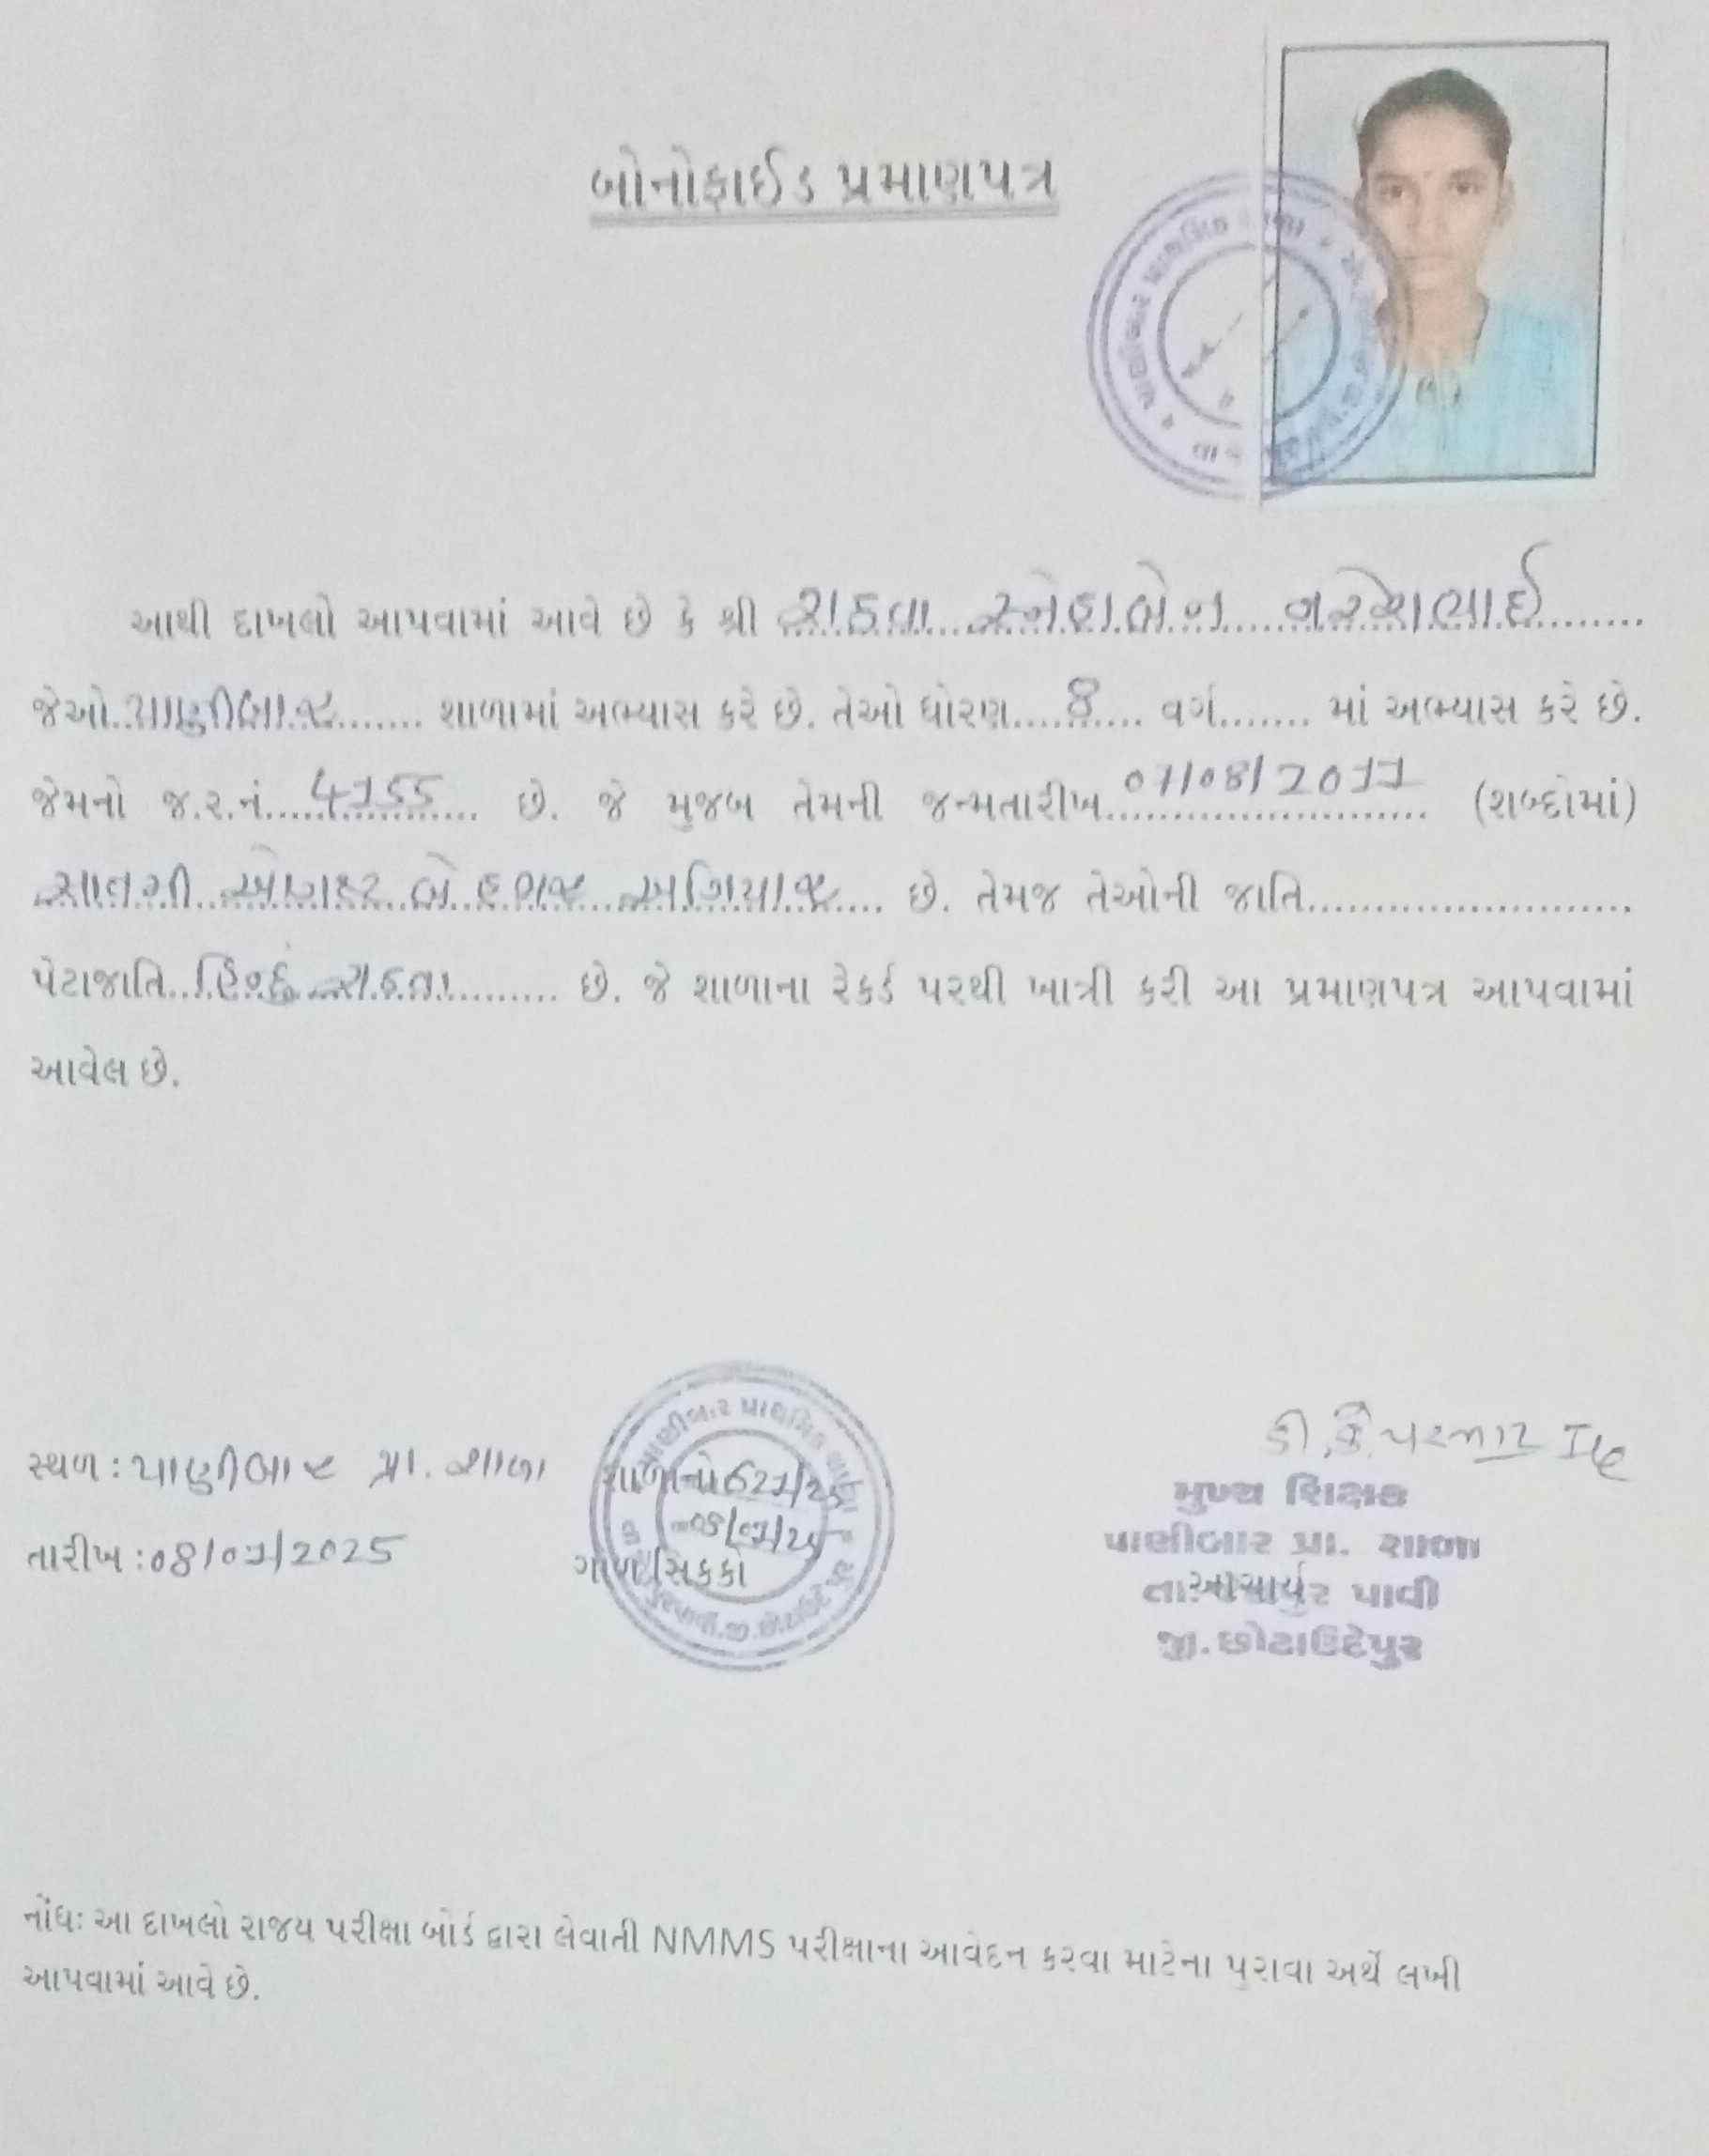 બોનોફાઈડ પ્રમાણપત્ર
આથી દાખલો આપવામાં આવે છે કે શ્રી રાઠવા સ્નેહાબેન નરેશભાઈ
જેઓ..પાણીબાર....... શાળામાં અભ્યાસ કરે છે. તેઓ ધોરણ....8.... વર્ગ........ માં અભ્યાસ કરે છે.
જેમનો જ.ર.નં....4155.... છે. જે મુજબ તેમની જન્મતારીખ 07/08/2011 (શબ્દોમાં)
સાતમી ઓગષ્ટ બે હજાર અગિયાર.... છે. તેમજ તેઓની જાતિ.........................
પેટાજાતિ..હિન્દુ રાઠવા.......... છે. જે શાળાના રેકર્ડ પરથી ખાત્રી કરી આ પ્રમાણપત્ર આપવામાં
આવેલ છે.
સ્થળ : પાણીબાર પ્રા. શાળા
તારીખ : 08/07/2025
શાળાનો
ગોળ સિક્કો
પાણીબાર પ્રાથમિક શાળા
ડી. કે. પરમાર
મુખ્ય શિક્ષક
પાણીબાર પ્રા. શાળા
આચાર્ય
પાવી
જી. છોટાઉદેપુર
નોંધઃ આ દાખલો રાજય પરીક્ષા બોર્ડ દ્વારા લેવાતી NMMS પરીક્ષાના આવેદન કરવા માટેના પુરાવા અર્થે લખી
આપવામાં આવે છે.